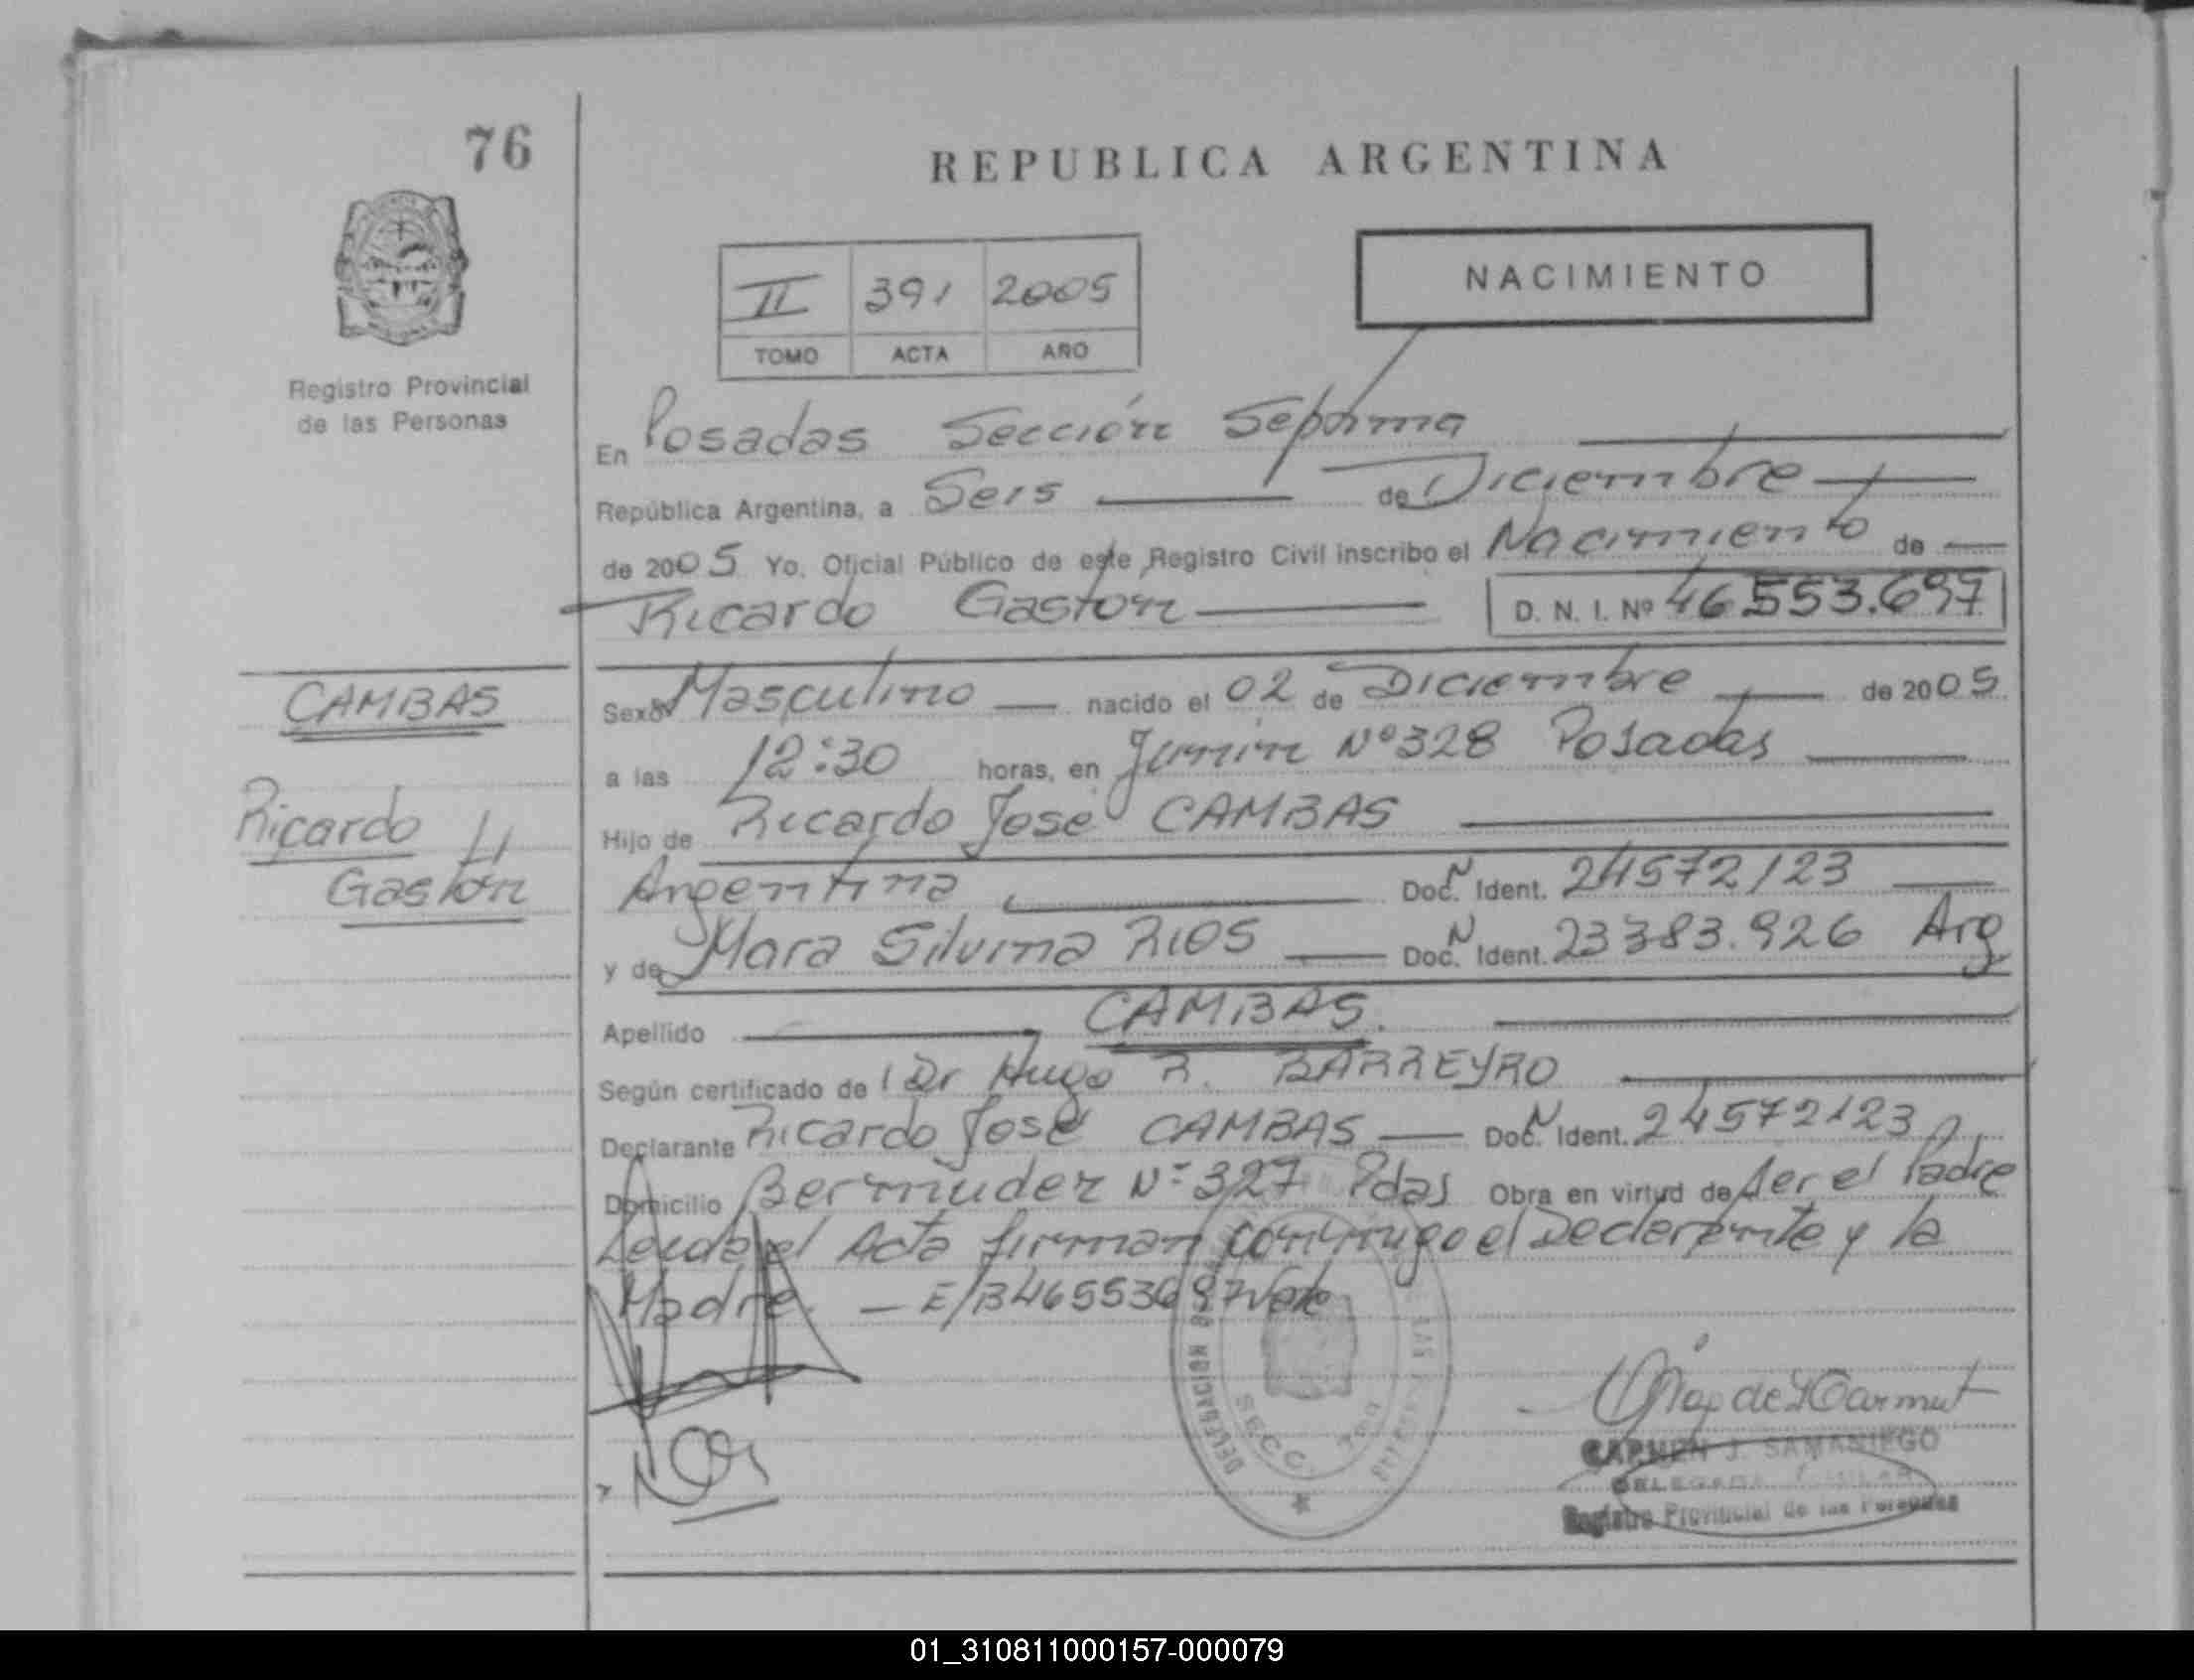 76
REPUBLICA ARGENTINA
NACIMIENTO
II 391 2005
TOMO ACTA AÑO
Registro Provincial
de las Personas
En Posadas Sección Séptima
República Argentina, a Seis de Diciembre
de 2005 Yo, Oficial Público de este Registro Civil inscribo el Nacimiento de
Ricardo Gaston D. N. I. Nº 46553.697
CAMBAS
Ricardo
Gaston
Sexo Masculino nacido el 02 de Diciembre de 2005
a las 12:30 horas, en Junin Nº 328 Posadas
Hijo de Ricardo José CAMBAS
Argentina Doc. N Ident. 24572123
y de Mara Silvina RIOS Doc. N Ident. 23383.926 Arg
Apellido CAMBAS.
Según certificado de Dr Hugo R. BARREYRO
Declarante Ricardo José CAMBAS Doc. N Ident. 24572123
Domicilio Bermudez Nº 327 Pdas Obra en virtud de ser el Padre
Leida el Acta firman conmigo el Declarante y la
Madre. — E/B 46553697 Vale
DELEGACION
SECC. 7ma
CARMEN J. SAMANIEGO
DELEGADA TITULAR
Registro Provincial de las Personas
01_310811000157-000079